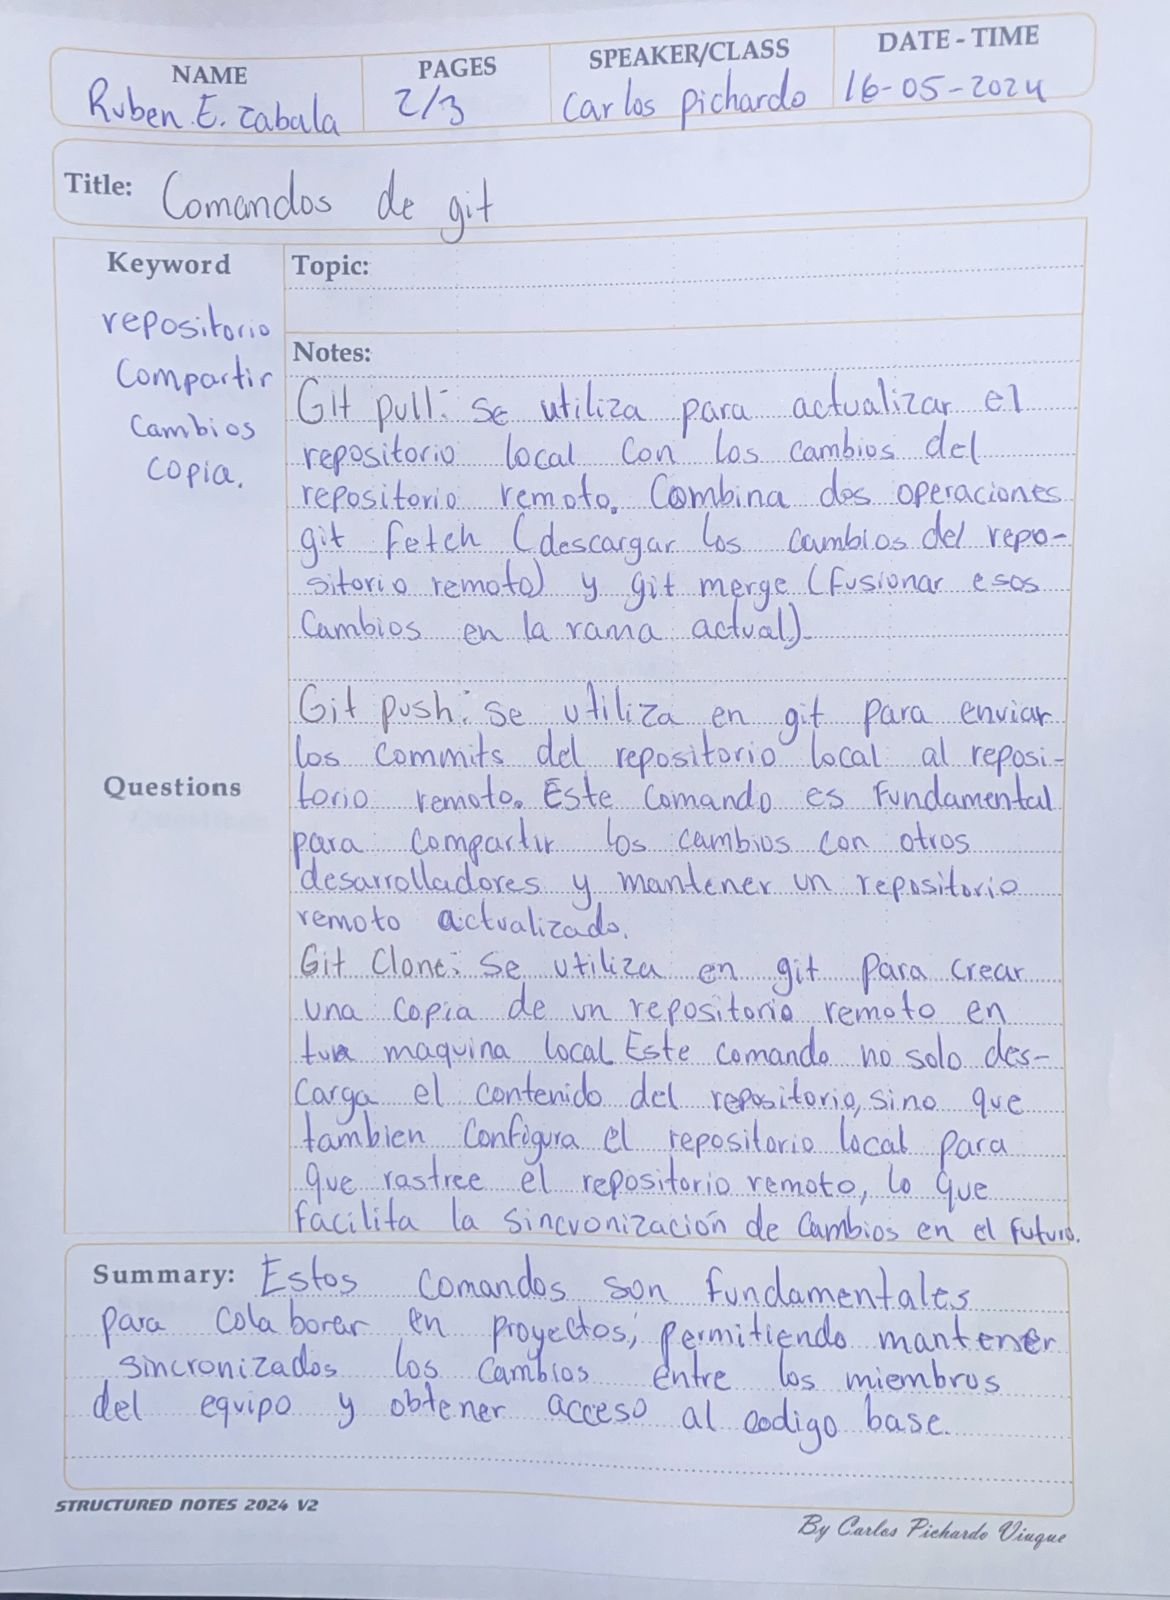 NAME PAGES SPEAKER/CLASS DATE - TIME
Ruben E. Zabala 2/3 Carlos pichardo 16-05-2024
Title: Comandos de git
Keyword
repositorio
Compartir
Cambios
copia.
Questions
Topic:
Notes:
Git pull: se utiliza para actualizar el
repositorio local con los cambios del
repositorio remoto. Combina dos operaciones
git fetch (descargar los cambios del repo-
sitorio remoto) y git merge (fusionar esos
Cambios en la rama actual).
Git push: se utiliza en git para enviar
los commits del repositorio local al reposi-
torio remoto. Este comando es fundamental
para compartir los cambios con otros
desarrolladores y mantener un repositorio
remoto actualizado.
Git Clone: se utiliza en git para crear
una copia de un repositorio remoto en
maquina local Este comando no solo des-
carga el contenido del repositorio, sino que
tambien configura el repositorio local para
que rastree el repositorio remoto, lo que
facilita la sincronización de cambios en el futuro.
Summary: Estos comandos son fundamentales
para colaborar en proyectos, permitiendo mantener
sincronizados los cambios entre los miembros
del equipo y obtener acceso al codigo base.
STRUCTURED NOTES 2024 V2
By Carlos Pichardo Viuque